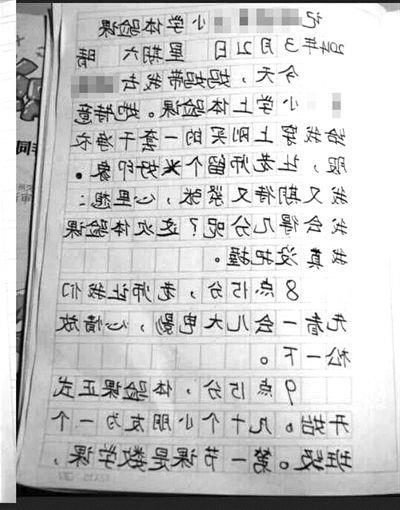 记小学体验课
2024年3月2日 星期六 晴
今天,妈妈带我去
小学上体验课。她特意
给我穿上刚买的一套干净衣
服,让老师留个好印象。
我又期待又紧张,心里想:
我会得几分呢?这次体验课
我真没把握。
8点15分,老师让我们
先看一会儿大电影,心情放
松一下。
9点15分,体验课正式
开始。几十个小朋友为一个
班级。第一节课是数学课,